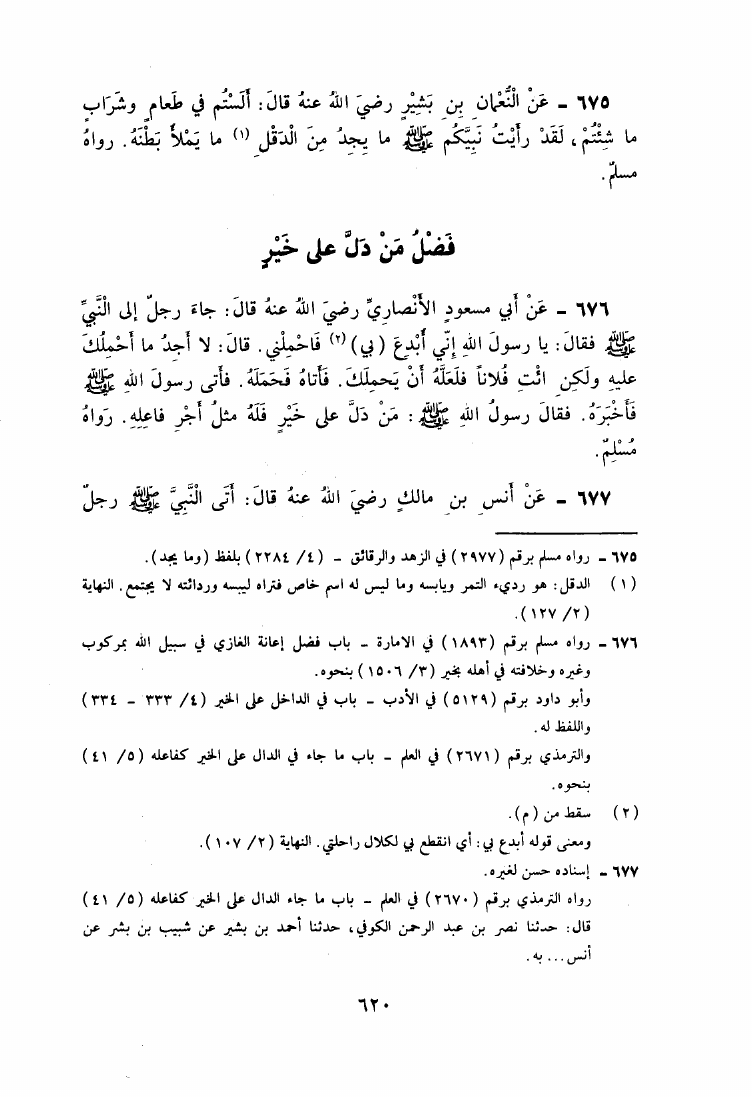 ٦٧٥ - عَنْ النُّعْمانِ بنِ بَشِيْرٍ رضيَ اللهُ عنهُ قالَ: أَلَسْتُم في طَعامٍ وشَرَابٍ
ما شِئْتُمْ، لَقَدْ رأَيْتُ نَبِيَّكُم ﷺ ما يجِدُ مِنَ الْدَقْلِ (١) ما يَمْلأُ بَطْنَهُ. رواهُ
مسلمٌ.
فَضْلُ مَنْ دَلَّ على خَيْرٍ
٦٧٦ - عَنْ أبي مسعودٍ الأَنْصاريِّ رضيَ اللهُ عنهُ قالَ: جاءَ رجلٌ إلى النَّبيِّ
ﷺ فقالَ: يا رسولَ اللهِ إنِّي أُبْدِعَ (بي) (٢) فَاحْمِلْني. قالَ: لا أَجدُ ما أَحْمِلُكَ
عليهِ ولَكِن ائْتِ فُلاناً فلَعَلَّهُ أَنْ يَحمِلَكَ. فَأَتاهُ فَحَمَلَهُ. فأَتى رسولَ اللهِ ﷺ
فَأَخْبَرَهُ. فقالَ رسولُ اللهِ ﷺ: مَنْ دَلَّ على خَيْرٍ فَلَهُ مثلُ أَجْرِ فاعلِهِ. رَواهُ
مُسْلِمٌ.
٦٧٧ - عَنْ أَنسِ بنِ مالكٍ رضيَ اللهُ عنهُ قالَ: أَتَى الْنَّبيَّ ﷺ رجلٌ
٦٧٥ - رواه مسلم برقم (٢٩٧٧) في الزهد والرقائق - (٤/ ٢٢٨٤) بلفظ (وما يجد).
(١) الدقل: هو رديء التمر ويابسه وما ليس له اسم خاص فتراه ليبسه وردائته لا يجتمع. النهاية
(٢/ ١٢٧).
٦٧٦ - رواه مسلم برقم (١٨٩٣) في الامارة - باب فضل إعانة الغازي في سبيل الله بمركوب
وغيره وخلافته في أهله بخير (٣/ ١٥٠٦) بنحوه.
وأبو داود برقم (٥١٢٩) في الأدب - باب في الداخل على الخير (٤/ ٣٣٣ - ٣٣٤)
واللفظ له.
والترمذي برقم (٢٦٧١) في العلم - باب ما جاء في الدال على الخير كفاعله (٥/ ٤١)
بنحوه.
(٢) سقط من (م).
ومعنى قوله أبدع بي: أي انقطع بي لكلال راحلتي. النهاية (٢/ ١٠٧).
٦٧٧ - إسناده حسن لغيره.
رواه الترمذي برقم (٢٦٧٠) في العلم - باب ما جاء الدال على الخير كفاعله (٥/ ٤١)
قال: حدثنا نصر بن عبد الرحمن الكوفي، حدثنا أحمد بن بشير عن شبيب بن بشر عن
أنس... به.
٦٢٠